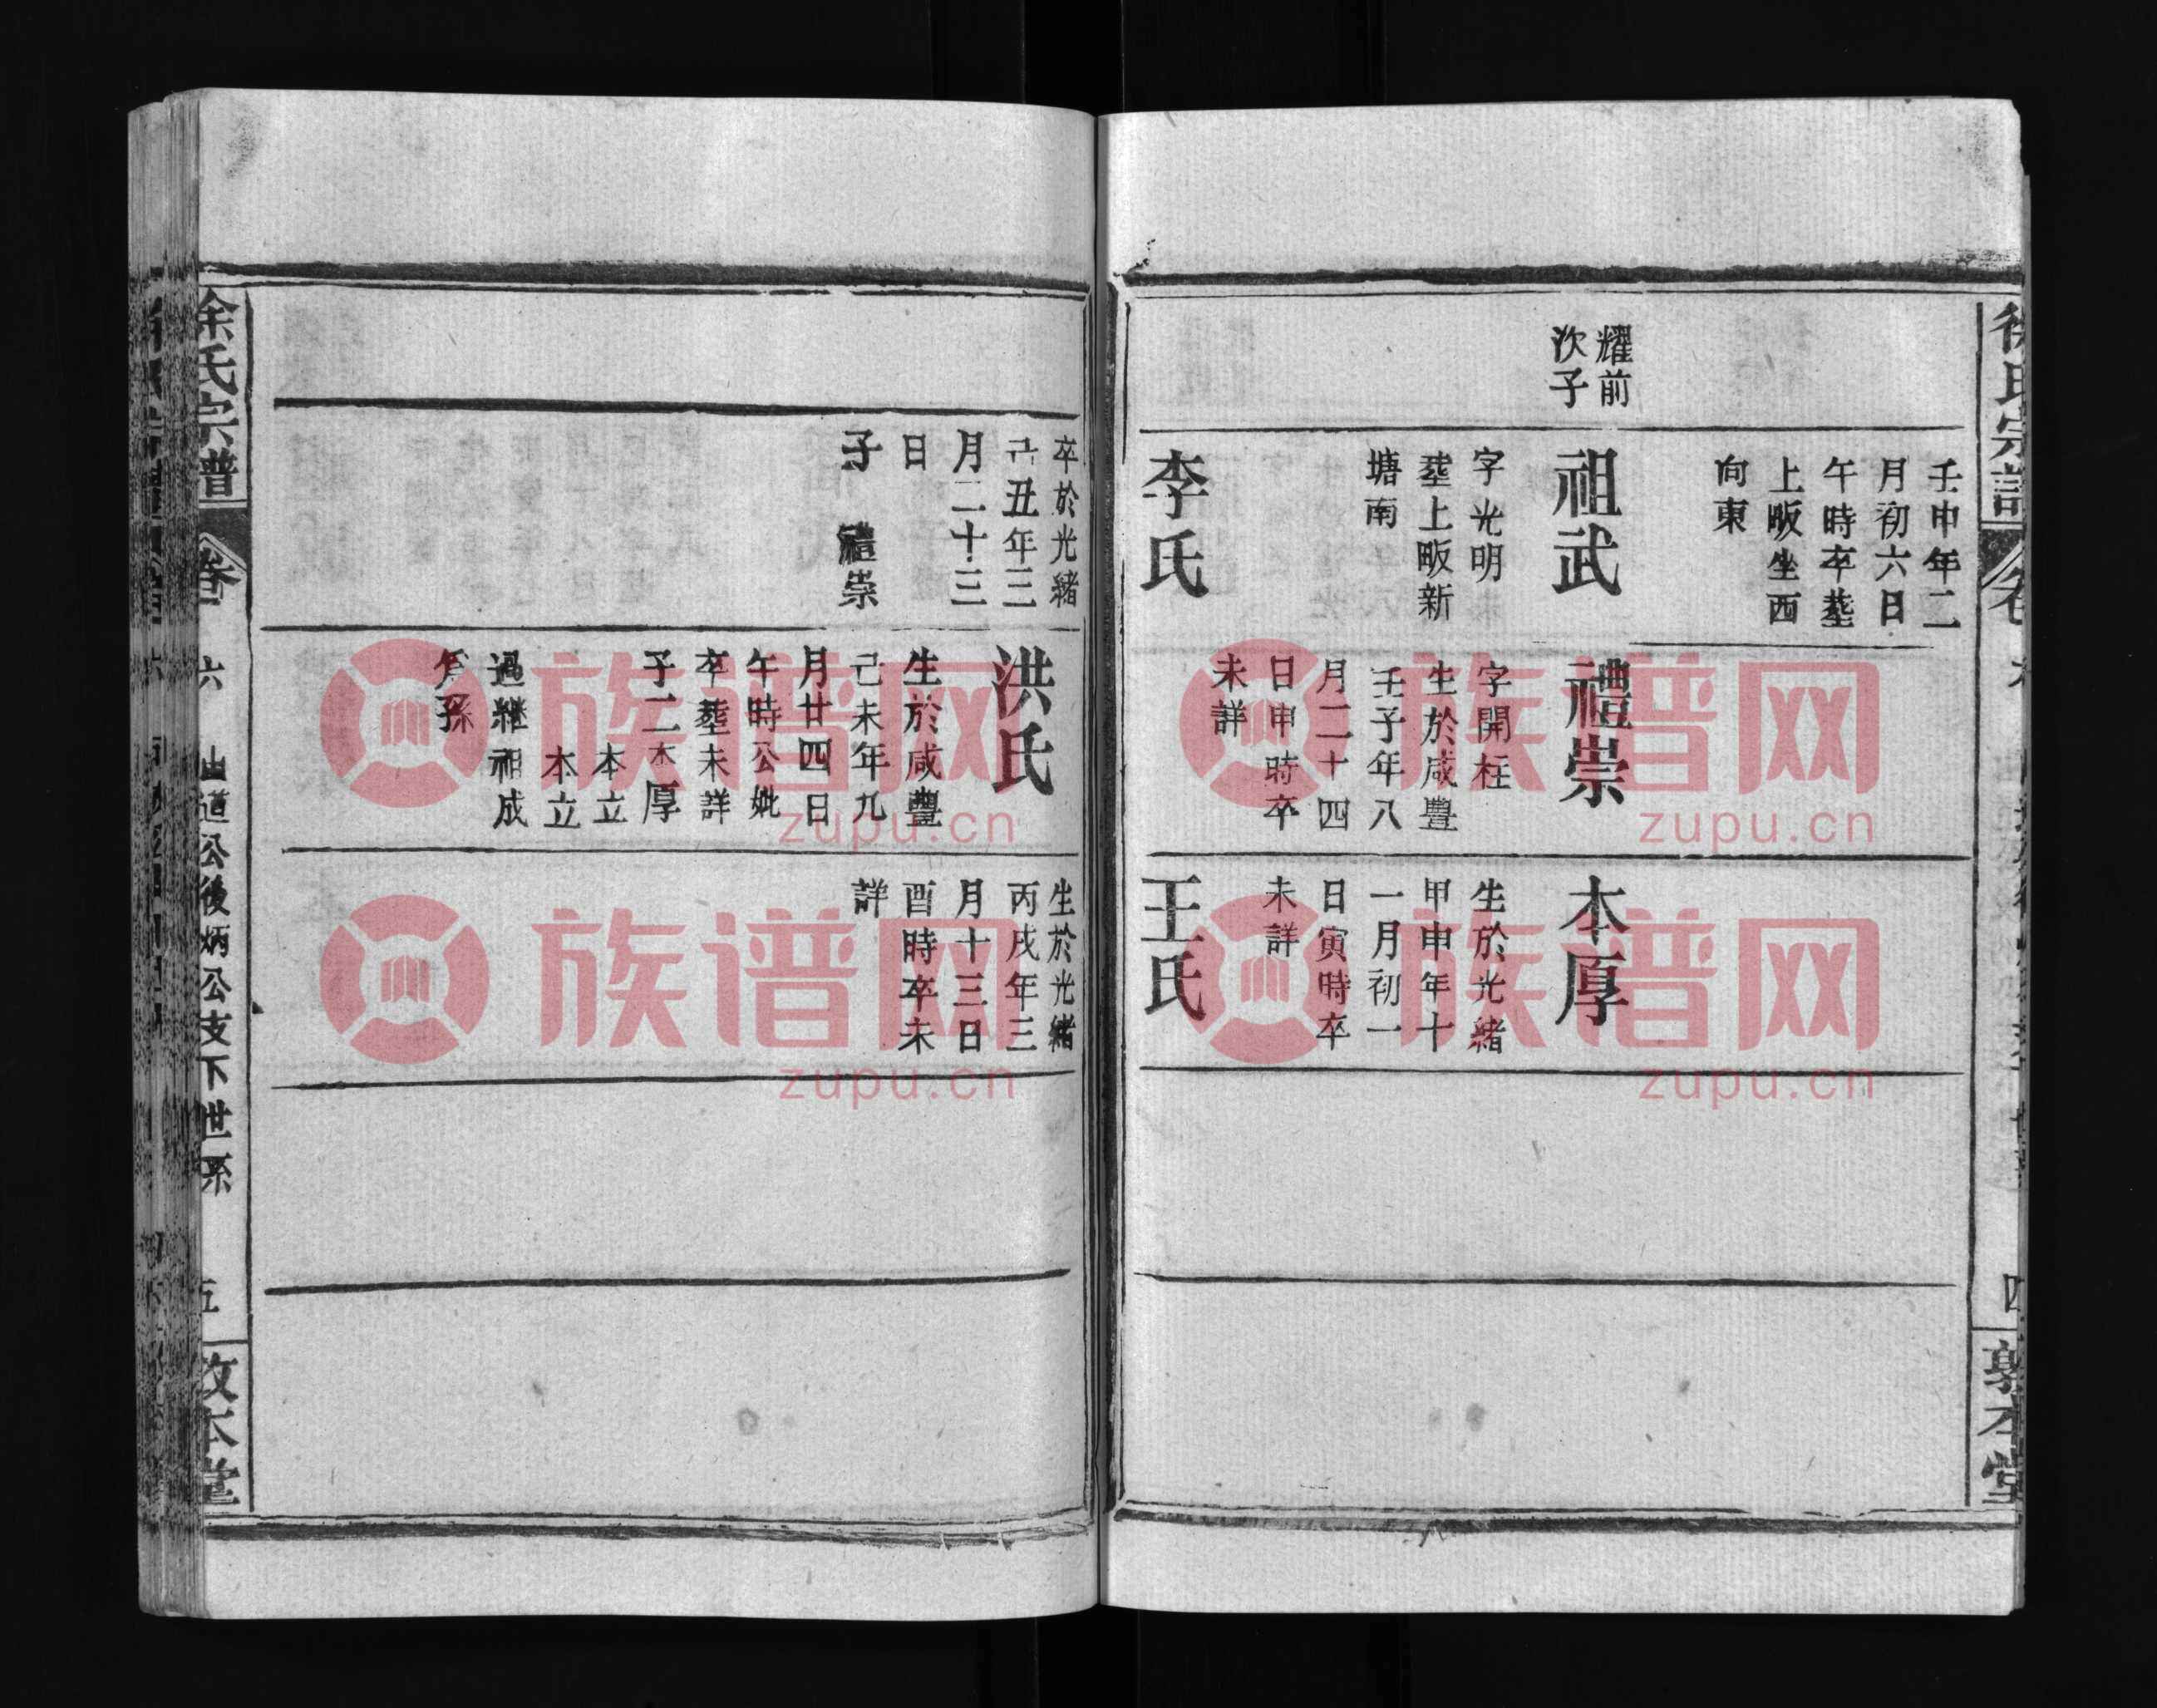 徐氏宗譜
卷
六
四
敦本堂
耀前
次子
壬申年二
月初六日
午時卒塟
上畈坐西
向東
祖武
字光明
塟上畈新
塘南
李氏
禮崇
字開枉
生於咸豐
壬子年八
月二十四
日申時卒
未詳
本厚
生於光緒
甲申年十
一月初一
日寅時卒
未詳
王氏
卒於光緒
己丑年三
月二十三
日
子 禮崇
洪氏
生於咸豐
己未年九
月廿四日
午時公妣
卒塟未詳
子二本厚
本立
本立
過繼祖成
為孫
生於光緒
丙戌年三
月十三日
酉時卒未
詳
徐氏宗譜
卷
六
道公後炳公支下世系
五
敦本堂
族谱网
zupu.cn
族谱网
zupu.cn
族谱网
zupu.cn
族谱网
zupu.cn